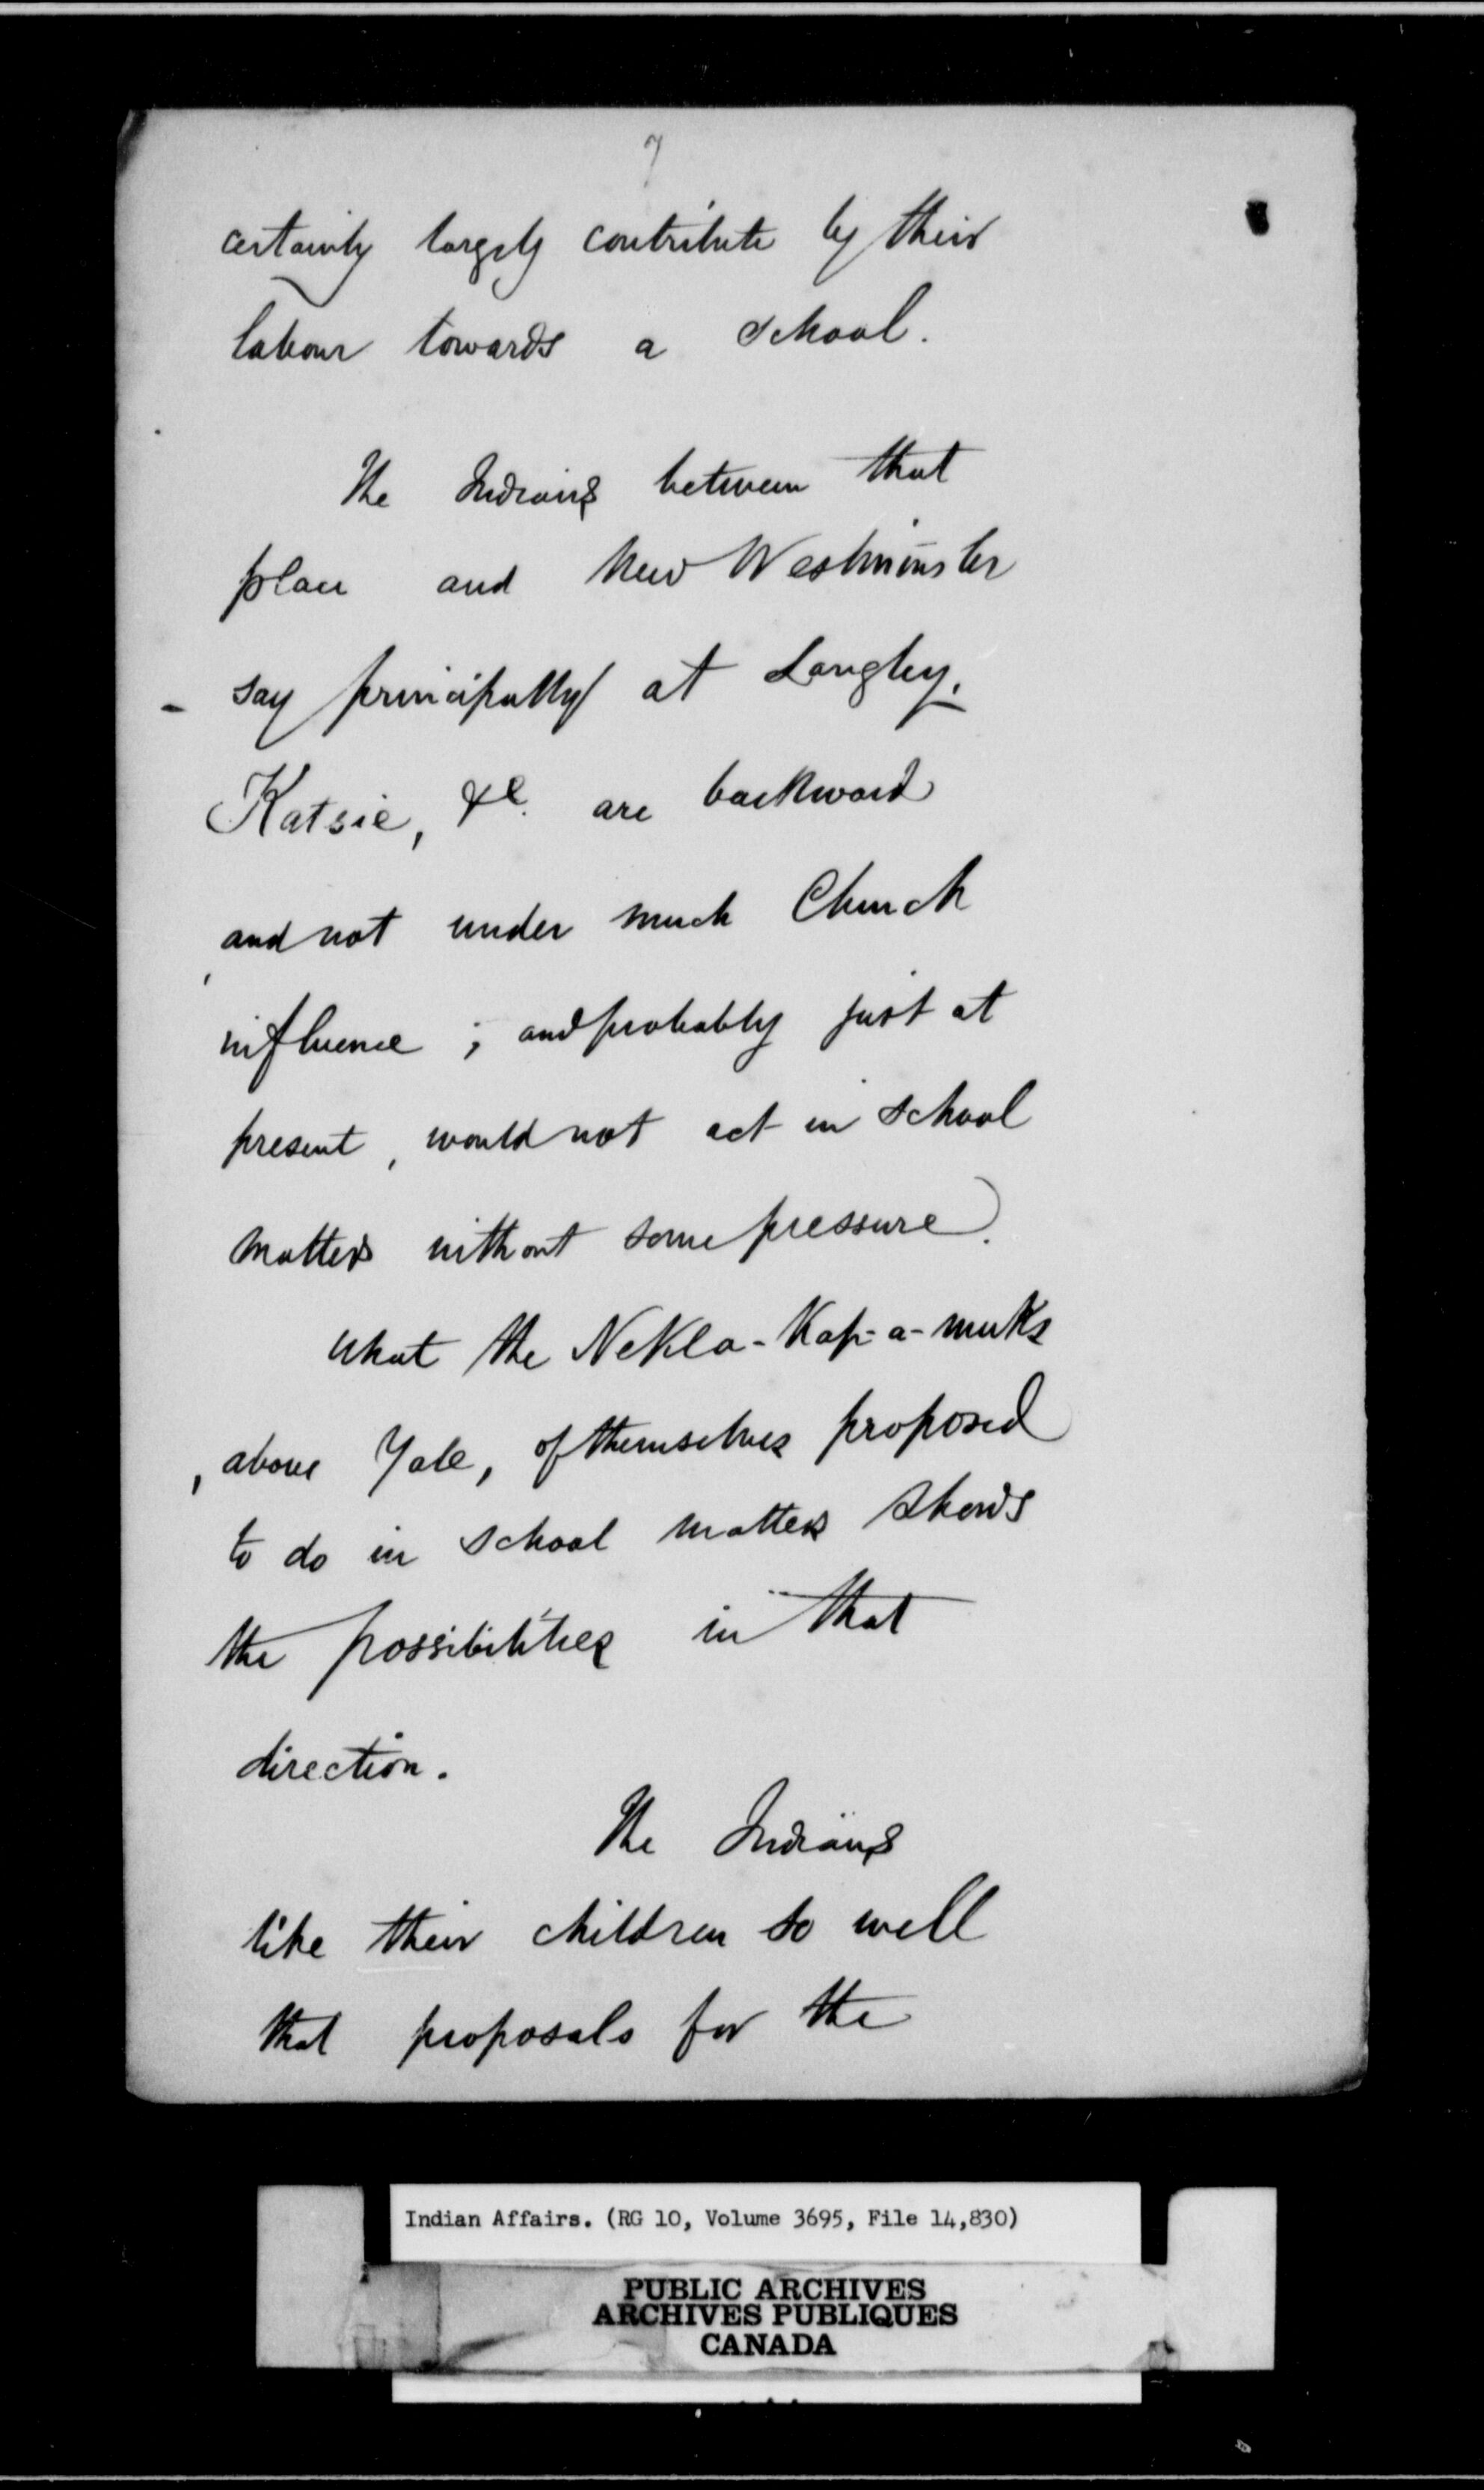 7
certainly largely contribute by their
labour towards a school.
The Indians between that
place and New Westminster
- say principally at Langley,
Katsie, &c. are backward
and not under much Church
influence ; and probably just at
present, would not act in school
matters without some pressure.
What the NeKla-Kap-a-muks
, above Yale, of themselves proposed
to do in school matters shows
the possibilities in that
direction.
The Indians
like their children so well
that proposals for the
Indian Affairs. (RG 10, Volume 3695, File 14,830)
PUBLIC ARCHIVES
ARCHIVES PUBLIQUES
CANADA